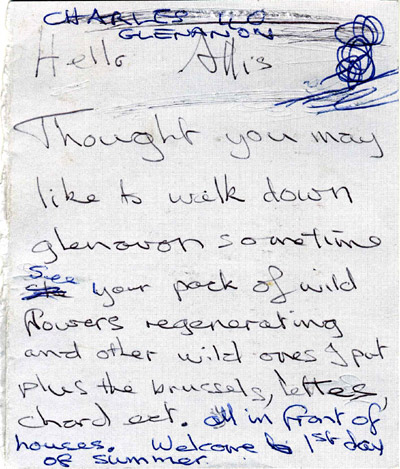 CHARLES 110
GLENANON
Hello Allis
Thought you may
like to walk down
glenavon sometime
See your pack of wild
flowers regenerating
and other wild ones I put
plus the brussels, lettes,
chard ect. all in front of
houses. Welcome to 1st day
of summer.